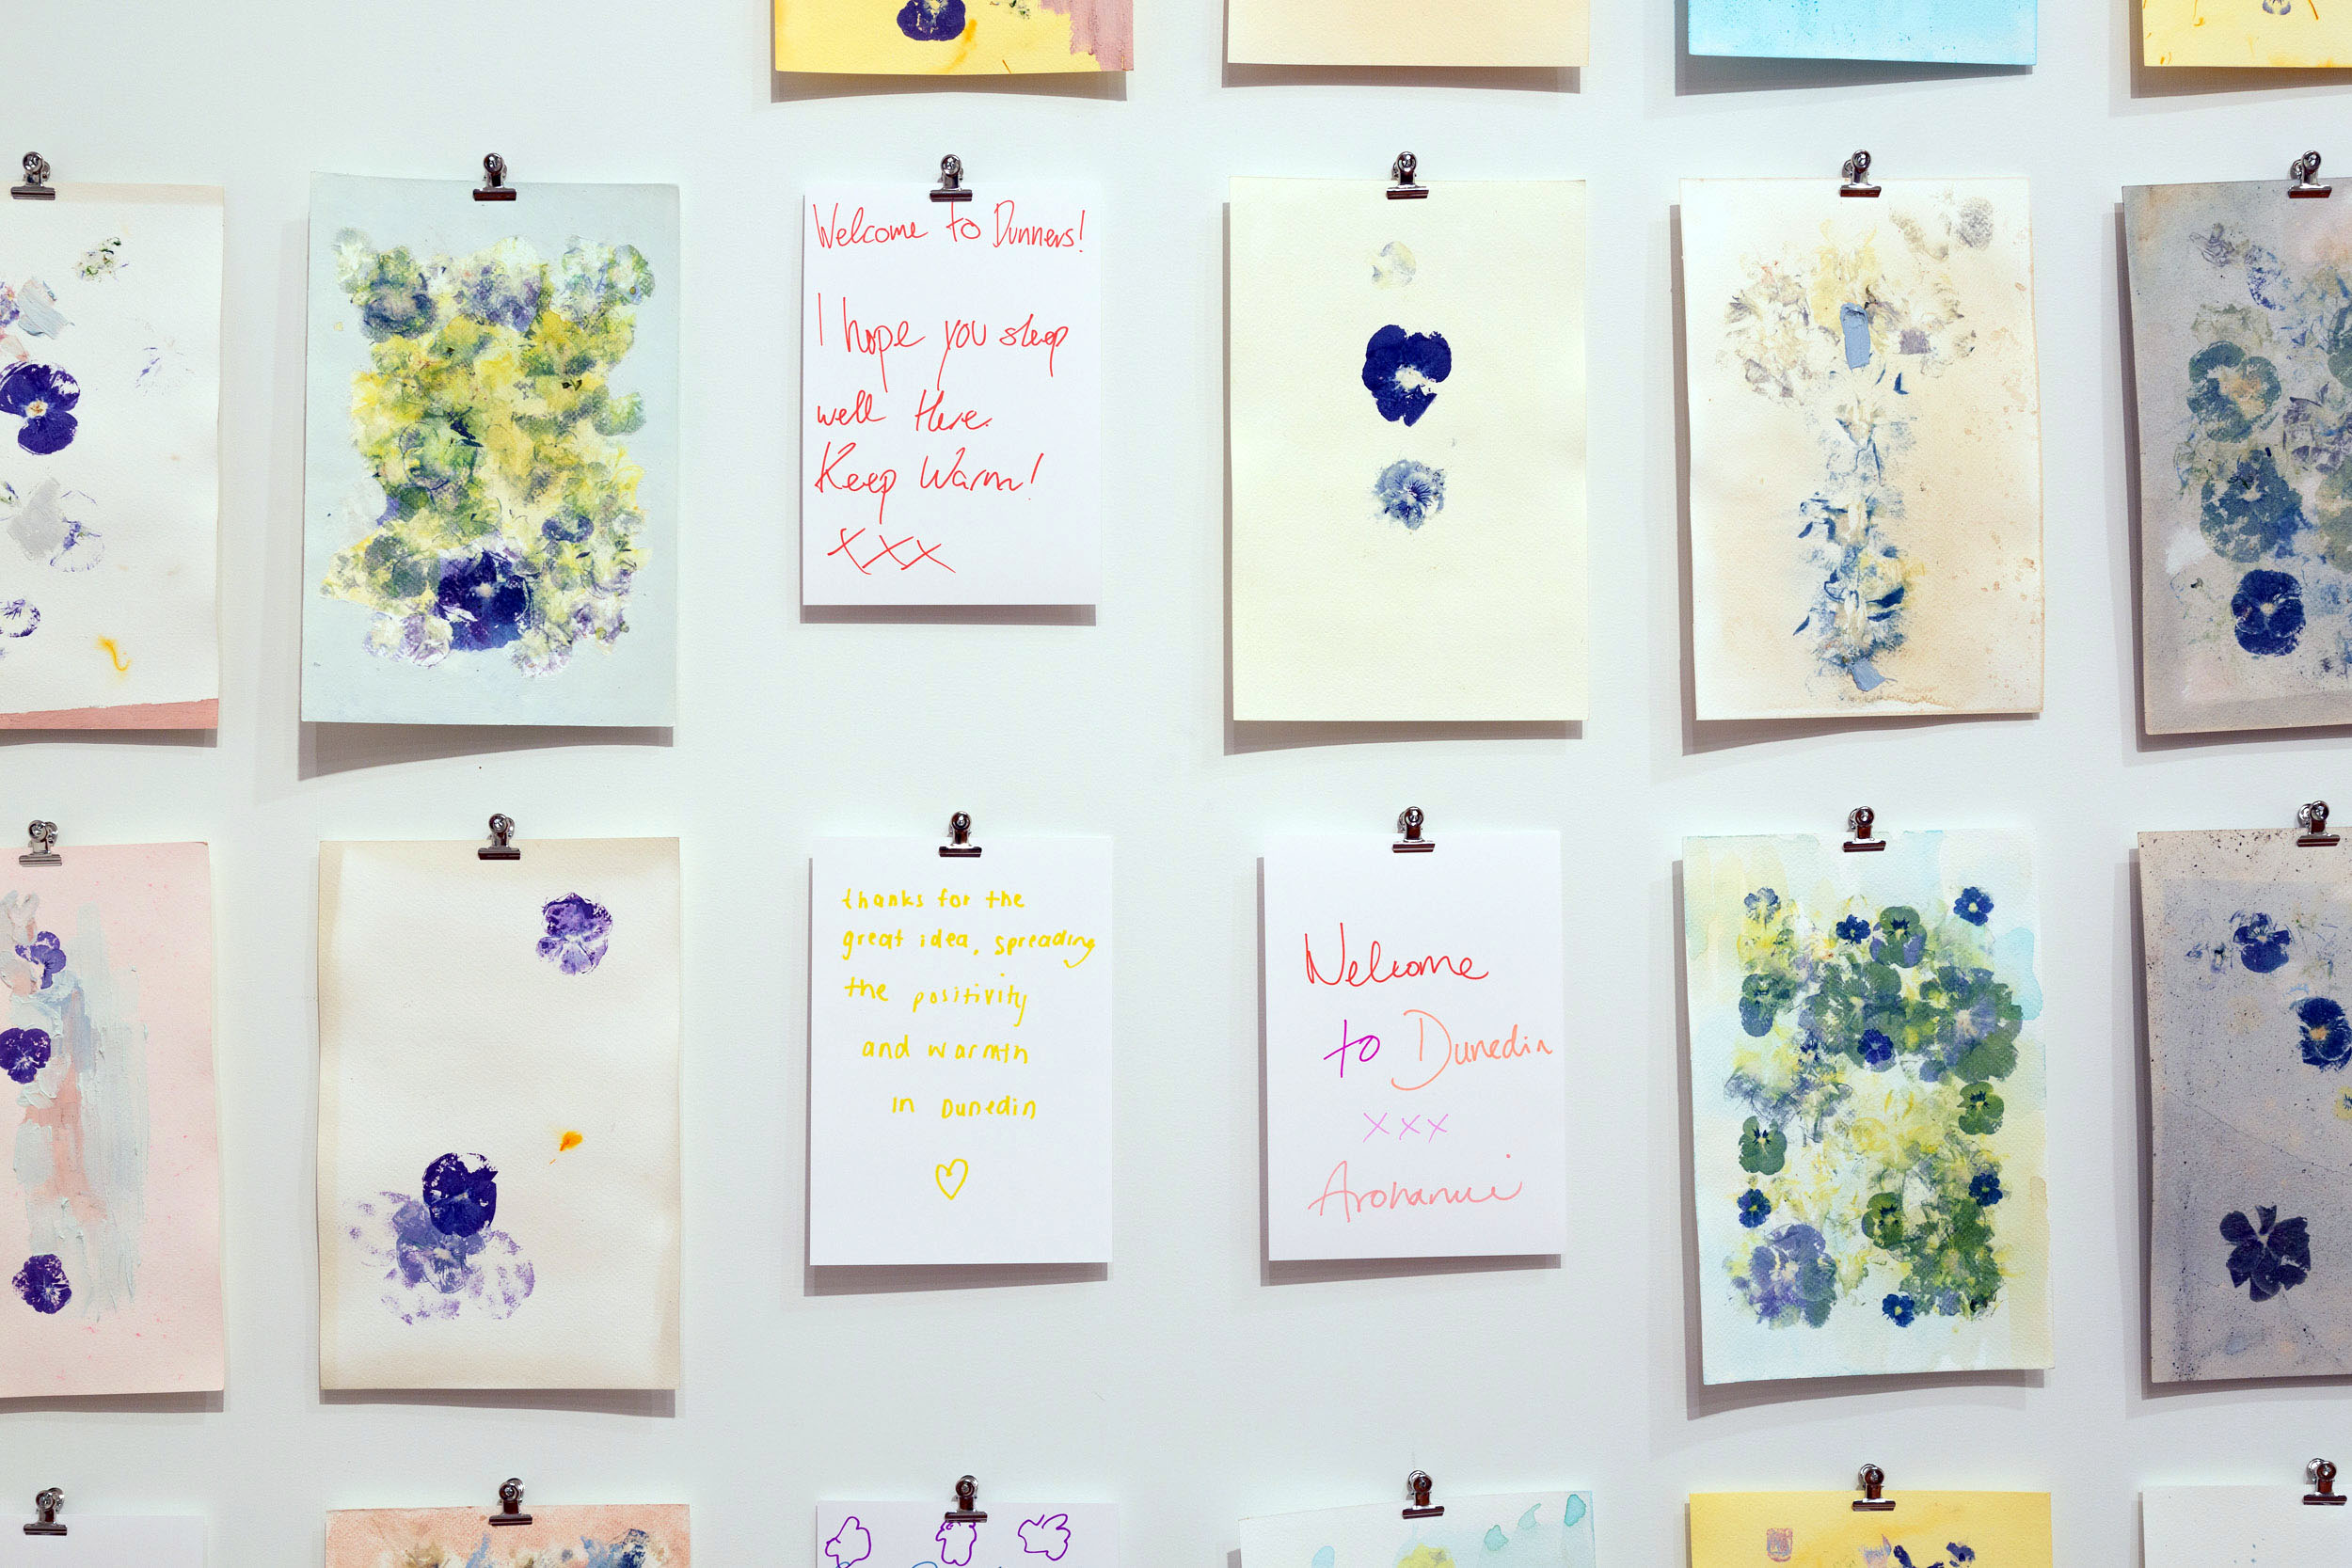 Welcome to Dunners!
I hope you sleep
well there.
Keep Warm!
xxx
thanks for the
great idea, spreading
the positivity
and warmth
in Dunedin
Welcome
to Dunedin
xxx
Arohanui